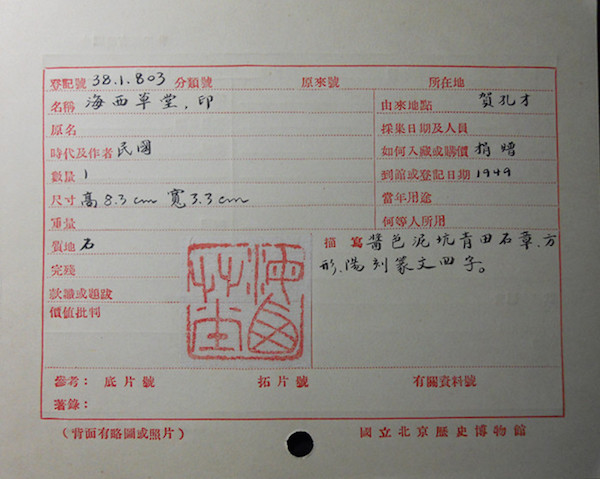 登記號 38.1.803 分類號 原來號 所在地
名稱 海西草堂,印
由來地點 賀孔才
原名
採集日期及人員
時代及作者 民國
如何入藏或購價 捐贈
數量 1
到館或登記日期 1949
尺寸 高8.3cm 寬3.3cm
當年用途
重量
何等人所用
質地 石
描寫 醬色泥坑青田石章,方
形,陽刻篆文四字。
完殘
款識或題跋
價值批判
海西草堂
參考: 底片號 拓片號 有關資料號
著錄:
(背面有略圖或照片) 國立北京歷史博物館